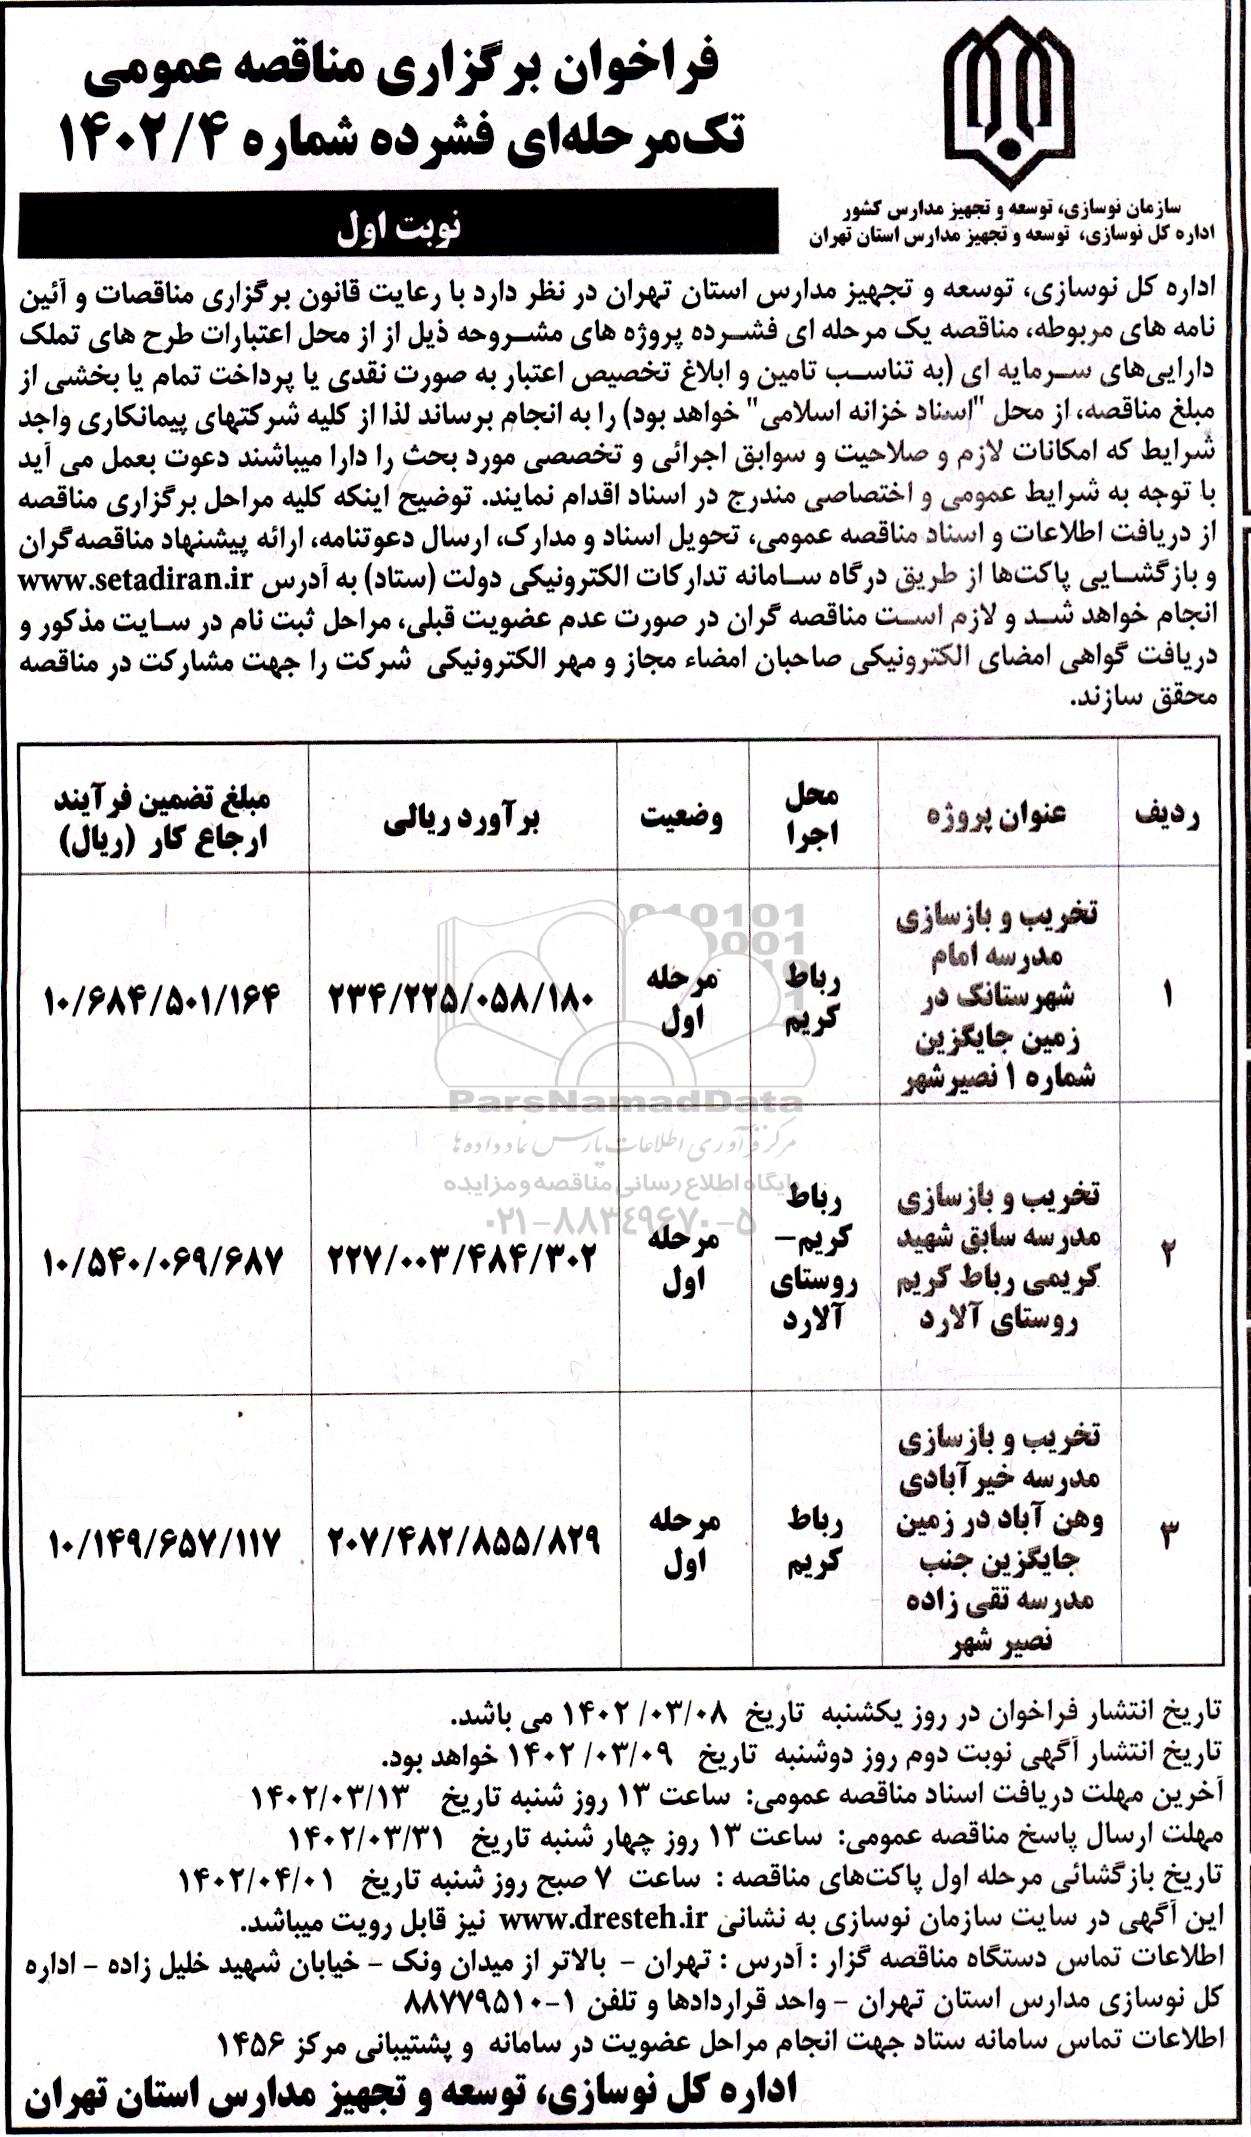 فراخوان برگزاری مناقصه عمومی
تک‌مرحله‌ای فشرده شماره ۱۴۰۲/۴
سازمان نوسازی، توسعه و تجهیز مدارس کشور
اداره کل نوسازی، توسعه و تجهیز مدارس استان تهران
نوبت اول
اداره کل نوسازی، توسعه و تجهیز مدارس استان تهران در نظر دارد با رعایت قانون برگزاری مناقصات و آئین
نامه های مربوطه، مناقصه یک مرحله ای فشرده پروژه های مشروحه ذیل از از محل اعتبارات طرح های تملک
دارایی‌های سرمایه ای (به تناسب تامین و ابلاغ تخصیص اعتبار به صورت نقدی یا پرداخت تمام یا بخشی از
مبلغ مناقصه، از محل "اسناد خزانه اسلامی" خواهد بود) را به انجام برساند لذا از کلیه شرکتهای پیمانکاری واجد
شرایط که امکانات لازم و صلاحیت و سوابق اجرائی و تخصصی مورد بحث را دارا میباشند دعوت بعمل می آید
با توجه به شرایط عمومی و اختصاصی مندرج در اسناد اقدام نمایند. توضیح اینکه کلیه مراحل برگزاری مناقصه
از دریافت اطلاعات و اسناد مناقصه عمومی، تحویل اسناد و مدارک، ارسال دعوتنامه، ارائه پیشنهاد مناقصه‌گران
و بازگشایی پاکت‌ها از طریق درگاه سامانه تدارکات الکترونیکی دولت (ستاد) به آدرس www.setadiran.ir
انجام خواهد شد و لازم است مناقصه گران در صورت عدم عضویت قبلی، مراحل ثبت نام در سایت مذکور و
دریافت گواهی امضای الکترونیکی صاحبان امضاء مجاز و مهر الکترونیکی شرکت را جهت مشارکت در مناقصه
محقق سازند.
ردیف
عنوان پروژه
محل
اجرا
وضعیت
برآورد ریالی
مبلغ تضمین فرآیند
ارجاع کار (ریال)
۱
تخریب و بازسازی
مدرسه امام
شهرستانک در
زمین جایگزین
شماره ۱ نصیرشهر
رباط
کریم
مرحله
اول
۲۳۴/۲۲۵/۰۵۸/۱۸۰
۱۰/۶۸۴/۵۰۱/۱۶۴
۲
تخریب و بازسازی
مدرسه سابق شهید
کریمی رباط کریم
روستای آلارد
رباط
کریم–
روستای
آلارد
مرحله
اول
۲۲۷/۰۰۳/۴۸۴/۳۰۲
۱۰/۵۴۰/۰۶۹/۶۸۷
۳
تخریب و بازسازی
مدرسه خیرآبادی
وهن آباد در زمین
جایگزین جنب
مدرسه تقی زاده
نصیر شهر
رباط
کریم
مرحله
اول
۲۰۷/۴۸۲/۸۵۵/۸۲۹
۱۰/۱۴۹/۶۵۷/۱۱۷
ParsNamadData
مرکز فرآوری اطلاعات پارس نماد داده ها
پایگاه اطلاع رسانی مناقصه و مزایده
۰۲۱-۸۸۳۴۹۶۷۰-۵
تاریخ انتشار فراخوان در روز یکشنبه تاریخ ۱۴۰۲/۰۳/۰۸ می باشد.
تاریخ انتشار آگهی نوبت دوم روز دوشنبه تاریخ ۱۴۰۲/۰۳/۰۹ خواهد بود.
آخرین مهلت دریافت اسناد مناقصه عمومی: ساعت ۱۳ روز شنبه تاریخ ۱۴۰۲/۰۳/۱۳
مهلت ارسال پاسخ مناقصه عمومی: ساعت ۱۳ روز چهار شنبه تاریخ ۱۴۰۲/۰۳/۳۱
تاریخ بازگشائی مرحله اول پاکت‌های مناقصه : ساعت ۷ صبح روز شنبه تاریخ ۱۴۰۲/۰۴/۰۱
این آگهی در سایت سازمان نوسازی به نشانی www.dresteh.ir نیز قابل رویت میباشد.
اطلاعات تماس دستگاه مناقصه گزار : آدرس : تهران – بالاتر از میدان ونک – خیابان شهید خلیل زاده – اداره
کل نوسازی مدارس استان تهران – واحد قراردادها و تلفن ۱-۸۸۷۷۹۵۱۰
اطلاعات تماس سامانه ستاد جهت انجام مراحل عضویت در سامانه و پشتیبانی مرکز ۱۴۵۶
اداره کل نوسازی، توسعه و تجهیز مدارس استان تهران